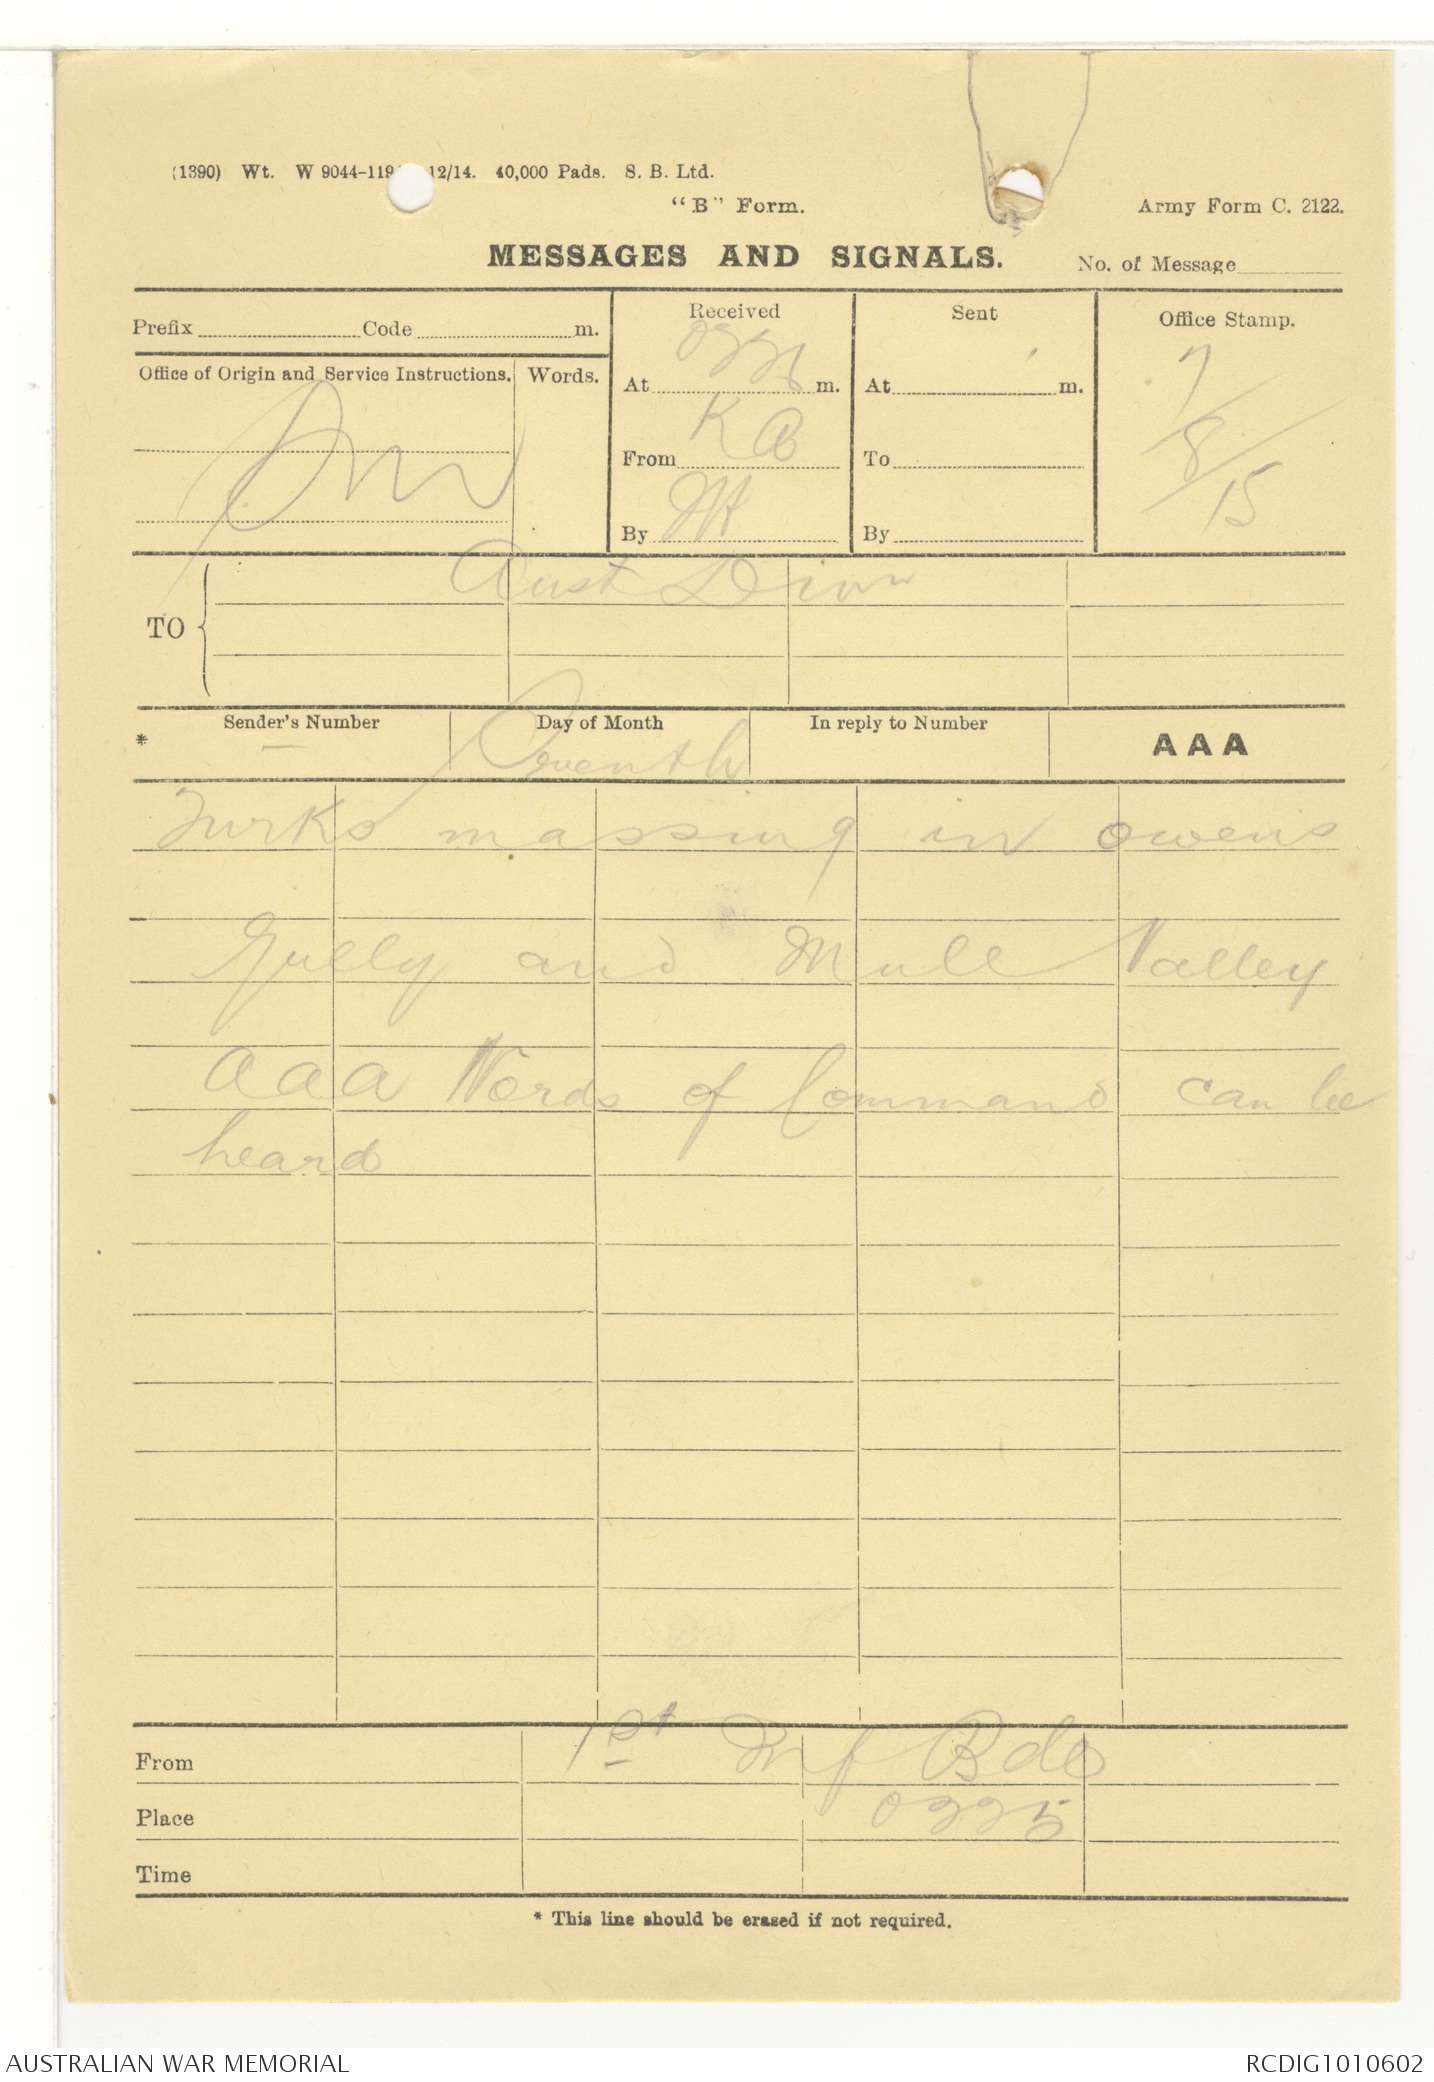 (1390) Wt. W 9044-119 12/14. 40,000 Pads. S. B. Ltd.
"B" Form.
Army Form C. 2122.
MESSAGES AND SIGNALS.
No. of Message
Prefix Code m.
Received
Sent
Office Stamp.
Office of Origin and Service Instructions.
Words.
At m.
At m.
7/8/15
From KB
To
By
By
TO
Aust Divn
Sender's Number
Day of Month
In reply to Number
AAA
*
Seventh
Turks massing in owens
Gully and Mule Valley
aaa Words of Command can be
heard
From
1st Inf Bde
Place
Time
* This line should be erased if not required.
AUSTRALIAN WAR MEMORIAL
RCDIG1010602